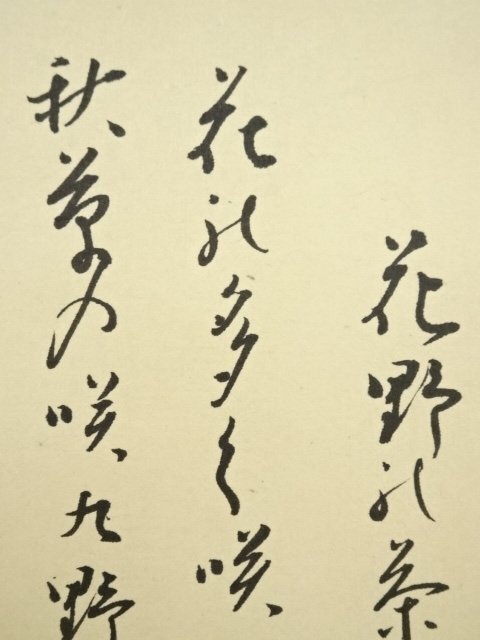 花野の茶
花の多く咲
秋草の咲た野